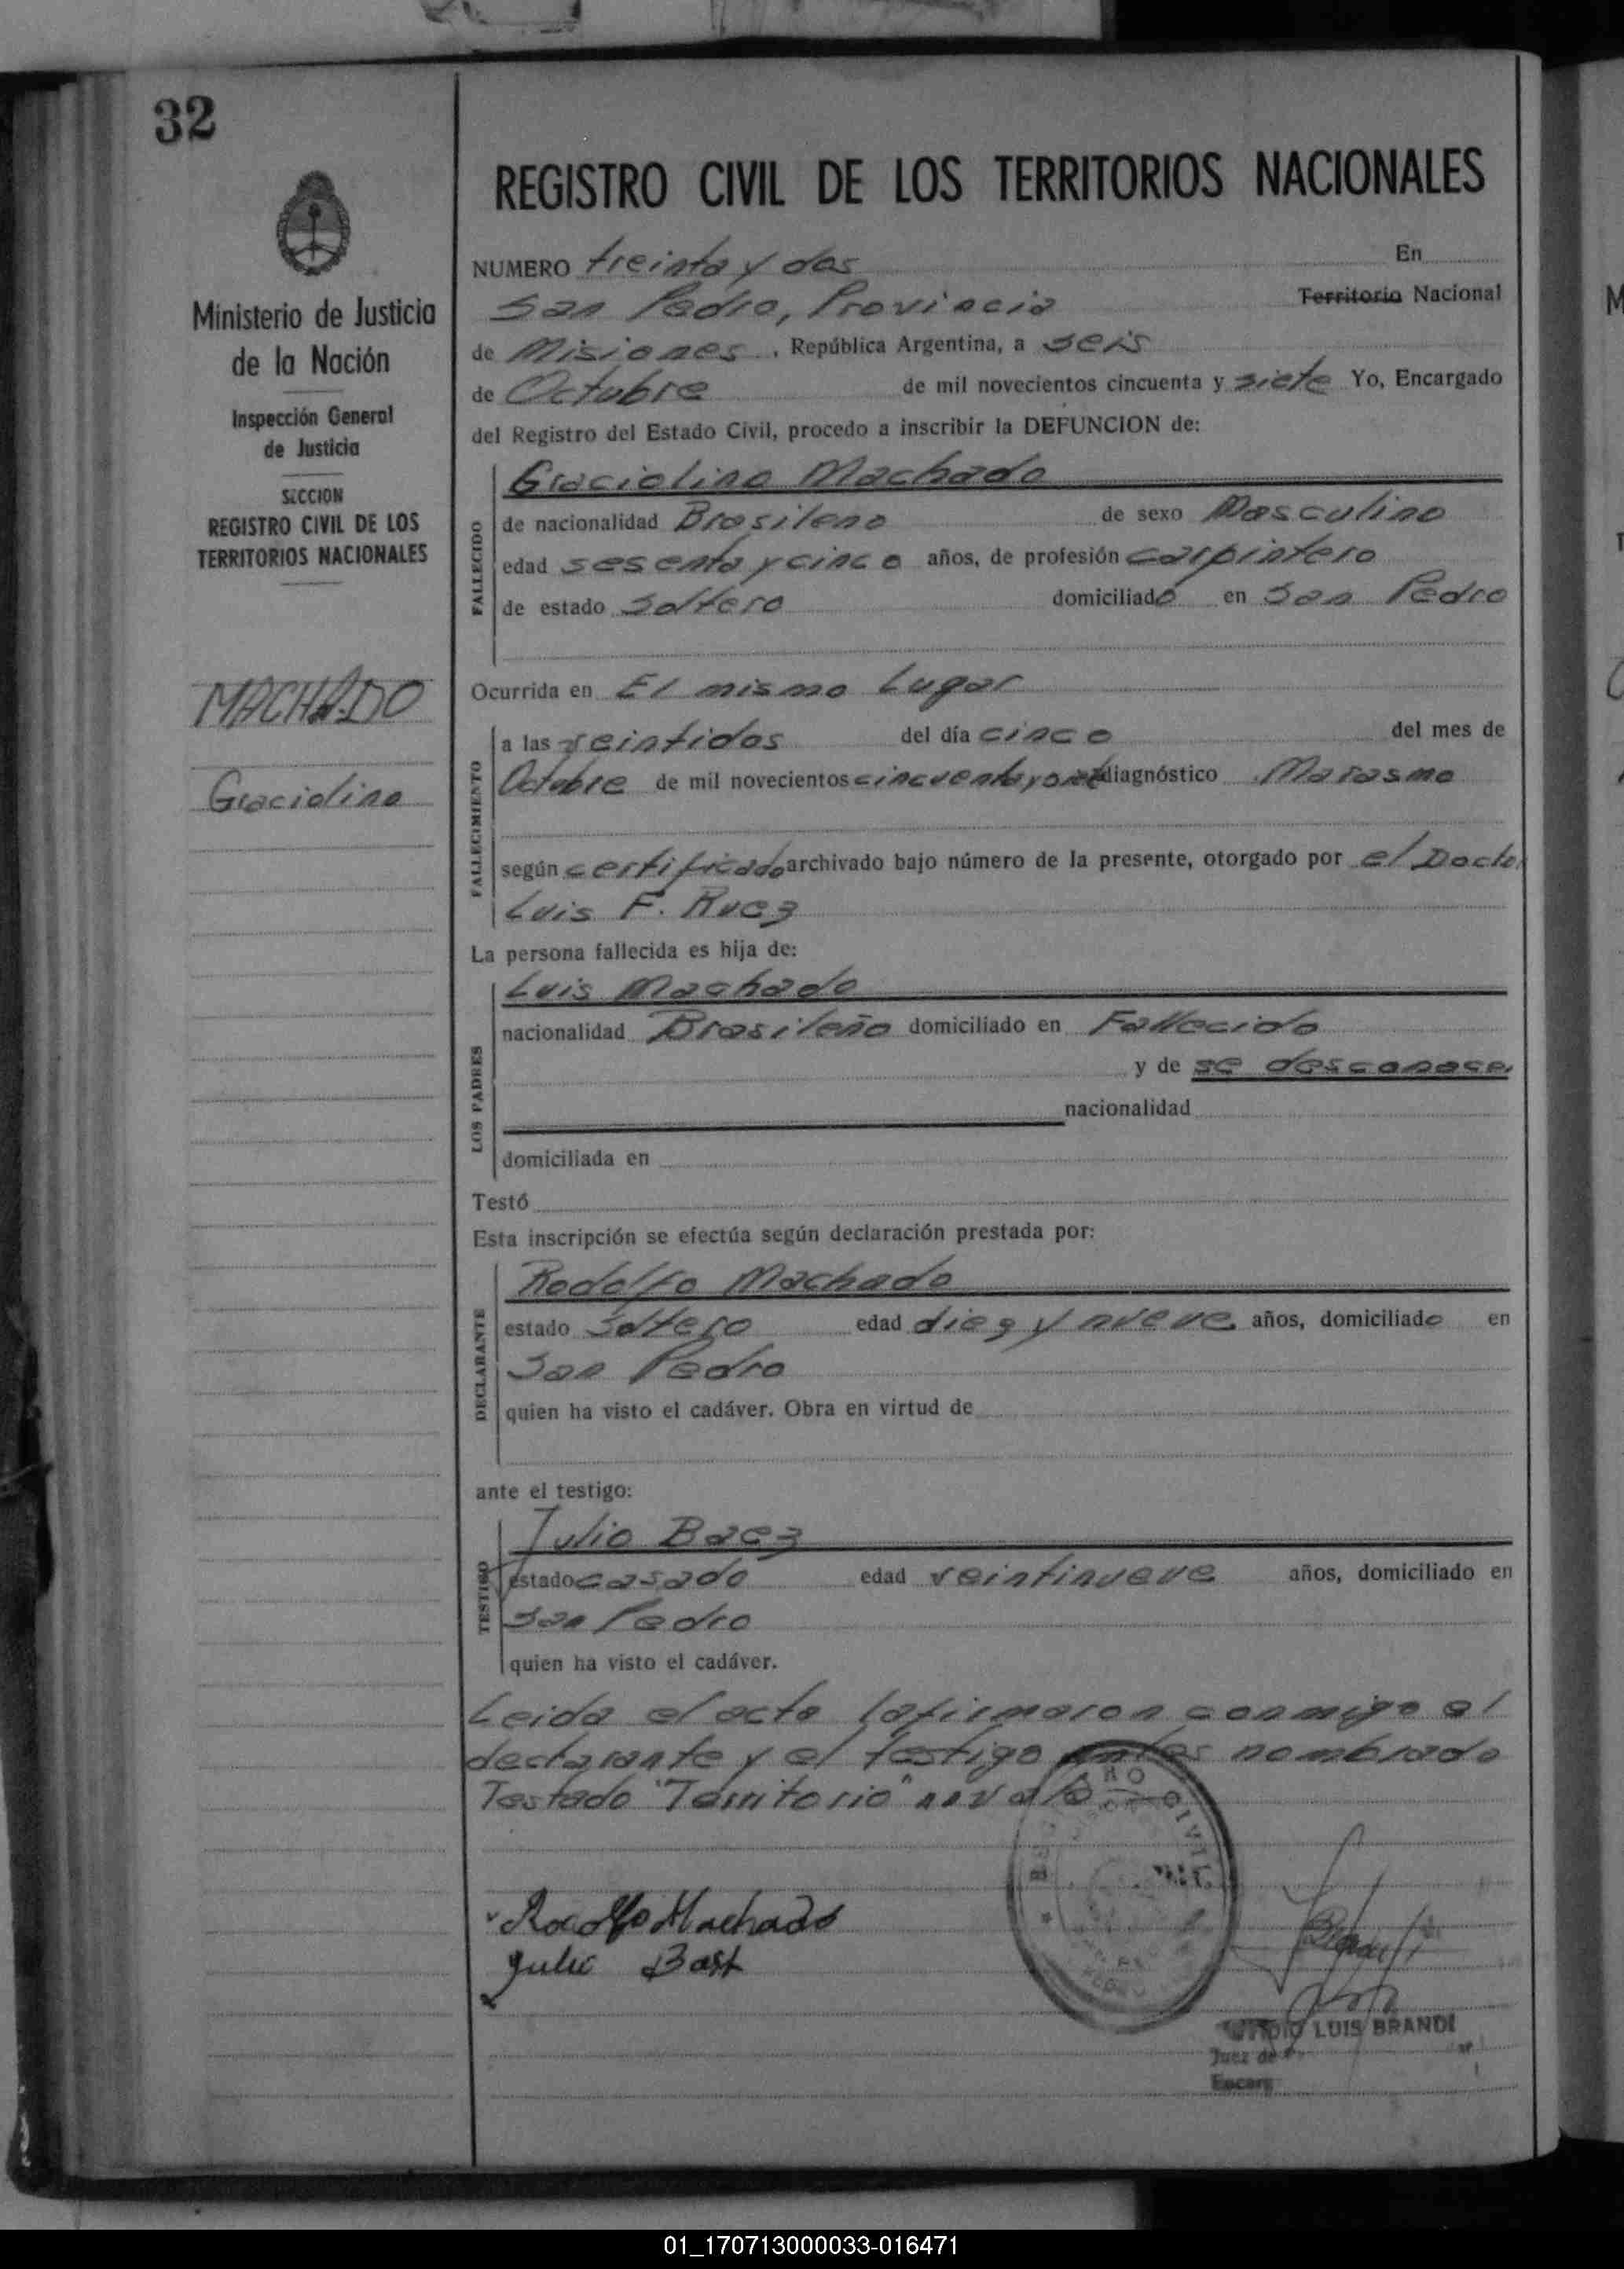 32
Ministerio de Justicia
de la Nación
Inspección General
de Justicia
SECCION
REGISTRO CIVIL DE LOS
TERRITORIOS NACIONALES
MACHADO
Graciolino
REGISTRO CIVIL DE LOS TERRITORIOS NACIONALES
NUMERO treinta y dos En
San Pedro, Provincia Territorio Nacional
de Misiones, República Argentina, a seis
de Octubre de mil novecientos cincuenta y siete Yo, Encargado
del Registro del Estado Civil, procedo a inscribir la DEFUNCION de:
Graciolino Machado
FALLECIDO
de nacionalidad Brasileno de sexo Masculino
edad sesenta y cinco años, de profesión carpintero
de estado Soltero domiciliado en San Pedro
Ocurrida en El mismo Lugar
FALLECIMIENTO
a las veintidos del día cinco del mes de
Octubre de mil novecientos cincuenta y diagnóstico Marasmo
según certificado archivado bajo número de la presente, otorgado por el Doctor
Luis F. Ruez
La persona fallecida es hija de:
LOS PADRES
Luis Machado
nacionalidad Brasileño domiciliado en Fallecido
y de se desconoce
nacionalidad
domiciliada en
Testó
Esta inscripción se efectúa según declaración prestada por:
DECLARANTE
Rodolfo Machado
estado Soltero edad diez y nueve años, domiciliado en
San Pedro
quien ha visto el cadáver. Obra en virtud de
ante el testigo:
TESTIGO
Julio Baez
estado casado edad veintinueve años, domiciliado en
San Pedro
quien ha visto el cadáver.
Leida el acta la firmaron conmigo el
declarante y el testigo antes nombrado
Testado "Territorio" no vale
Rodolfo Machado
LUIS BRANDI
Juez de
Encarg
01_170713000033-016471